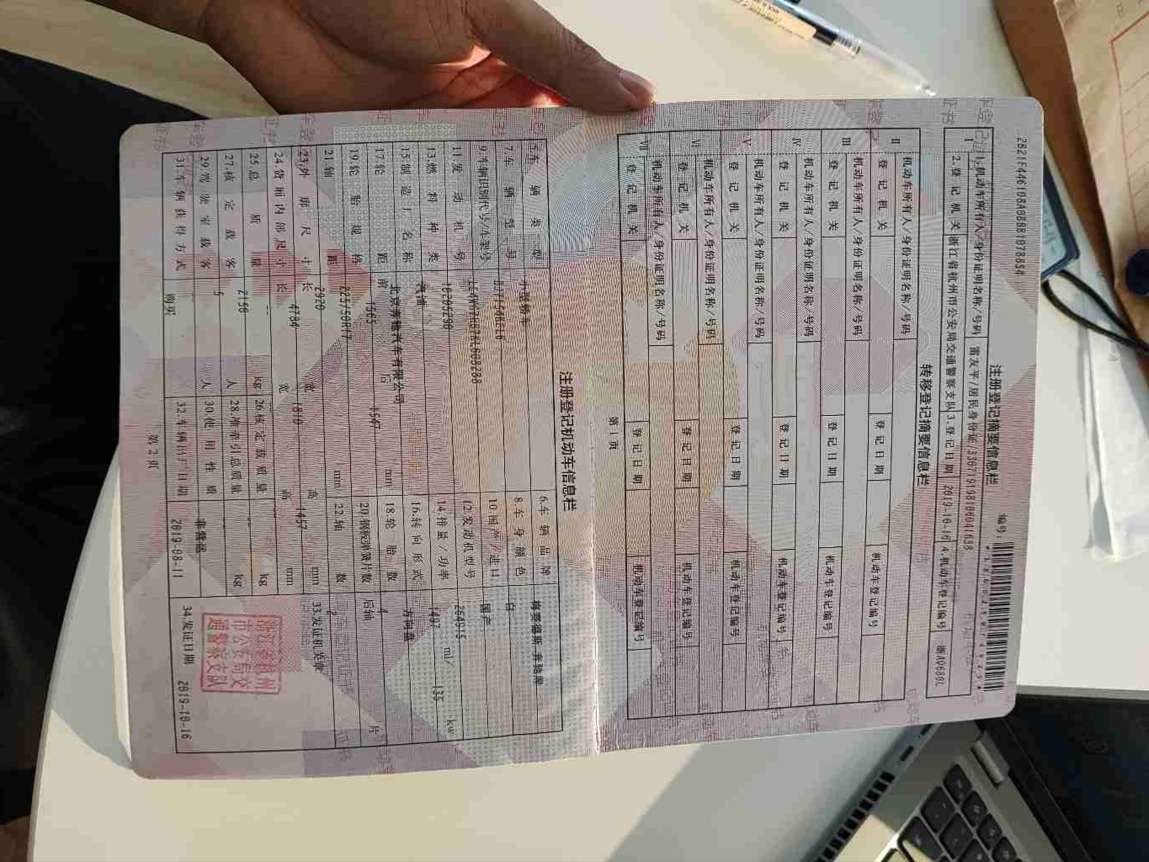 2B21F446108A6BBB1078854
注册登记摘要信息栏
编号:
I 1.机动车所有人/身份证明名称/号码 雷友平/居民身份证/
2.登记机关 浙江省杭州市公安局交通警察支队 3.登记日期 2019-10-16 4.机动车登记编号
转移登记摘要信息栏
II 机动车所有人/身份证明名称/号码
登记机关 登记日期 机动车登记编号
III 机动车所有人/身份证明名称/号码
登记机关 登记日期 机动车登记编号
IV 机动车所有人/身份证明名称/号码
登记机关 登记日期 机动车登记编号
V 机动车所有人/身份证明名称/号码
登记机关 登记日期 机动车登记编号
VI 机动车所有人/身份证明名称/号码
登记机关 登记日期 机动车登记编号
VII 机动车所有人/身份证明名称/号码
登记机关 登记日期 机动车登记编号
第1页
注册登记机动车信息栏
5.车辆类型 小型轿车 6.车辆品牌
7.车辆型号 8.车身颜色 白
9.车辆识别代号/车架号 10.国产/进口 国产
11.发动机号 12.发动机型号 264915
13.燃料种类 汽油 14.排量/功率 1497 ml/ 135 kw
15.制造厂名称 北京奔驰汽车有限公司 16.转向形式 方向盘
17.轮距 前 1565 后 1547 mm 18.轮胎数 4
19.轮胎规格 225/50R17 20.钢板弹簧片数 后轴 片
21.轴距 2920 mm 22.轴数 2
23.外廓尺寸 长 4784 宽 1810 高 1457 mm 33.发证机关章
24.货厢内部尺寸 长 宽 高 mm
25.总质量 2150 kg 26.核定载质量 kg
27.核定载客 5 人 28.准牵引总质量 kg
29.驾驶室载客 人 30.使用性质 非营运
31.车辆获得方式 购买 32.车辆出厂日期 2019-08-11 34.发证日期 2019-10-16
浙江省杭州
市公安局交
通警察支队
第2页